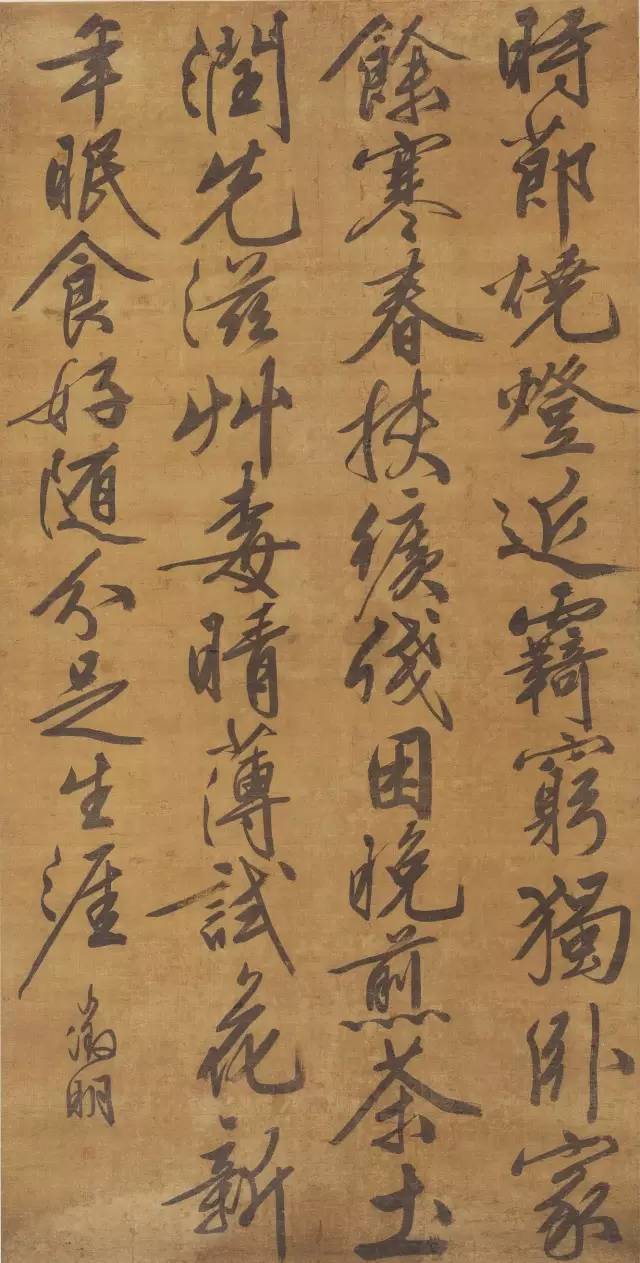 時節燒燈近羇窮獨臥家
餘寒春挾纊殘困晚煎茶土
潤先滋艸梅晴薄試花新
年眠食好隨分足生涯
徵明